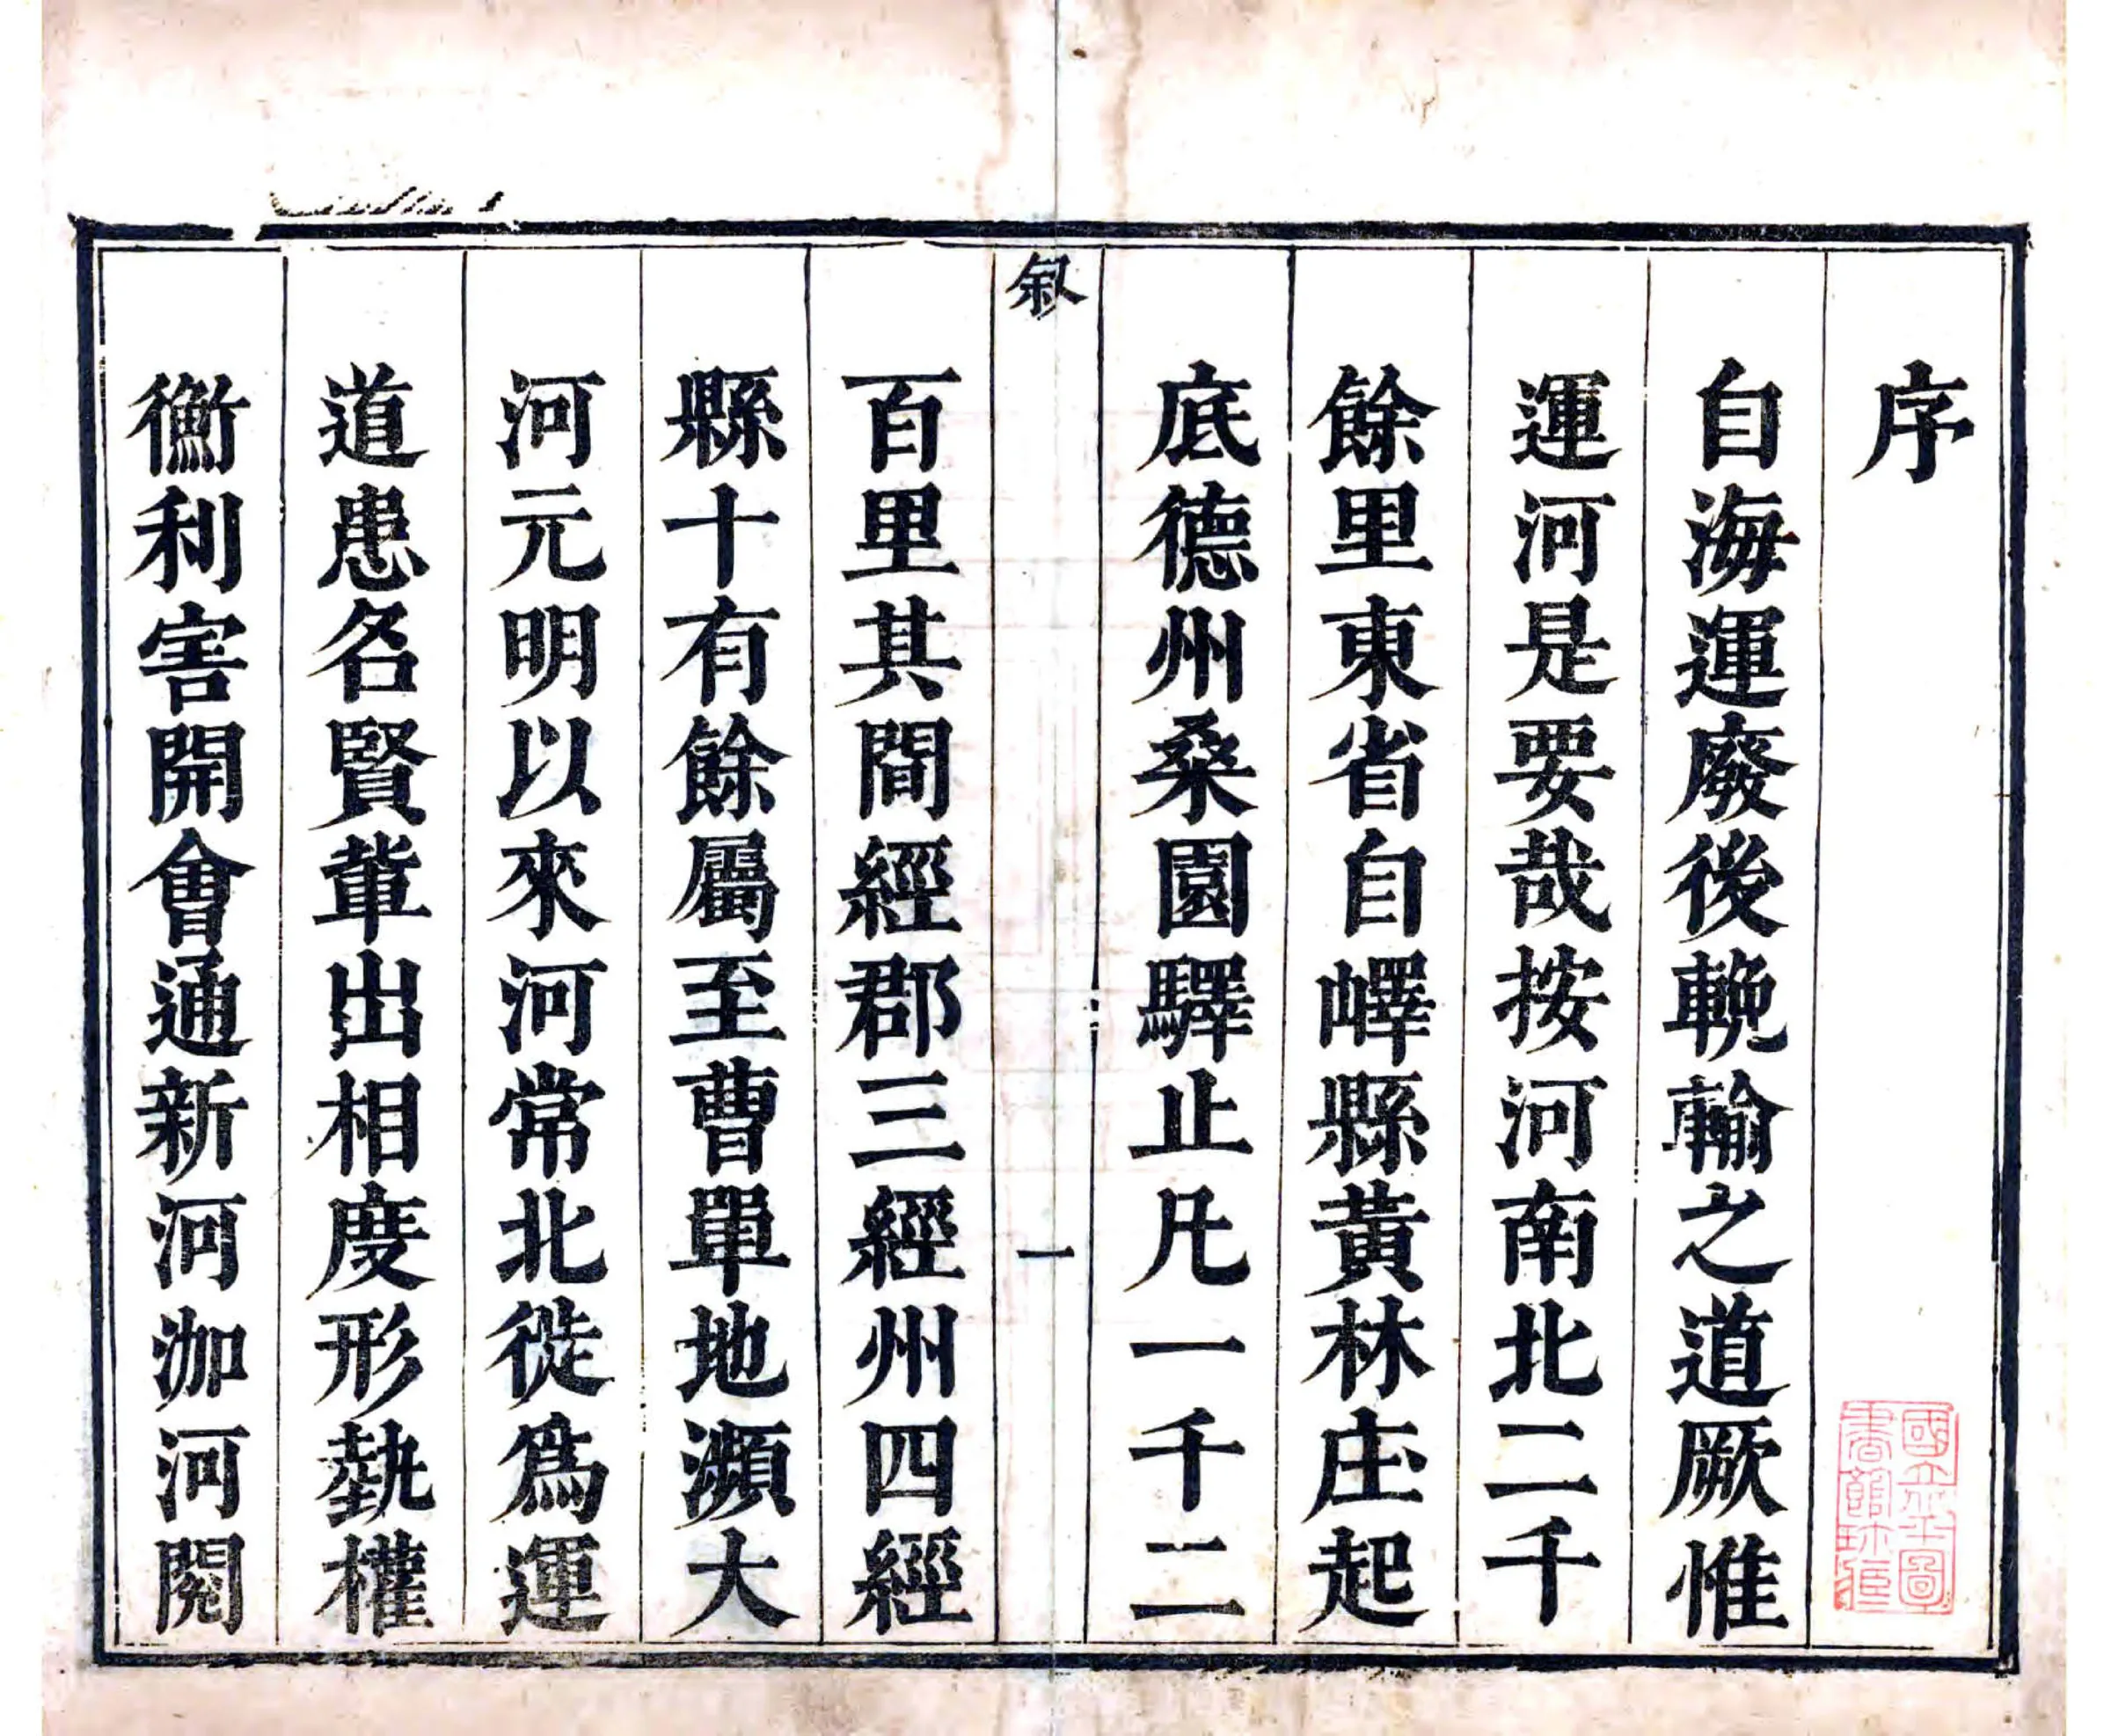 序
自海運廢後輓輸之道厥惟
運河是要哉按河南北二千
餘里東省自嶧縣黃林庄起
底德州桑園驛止凡一千二
敘
一
百里其間經郡三經州四經
縣十有餘屬至曹單地瀕大
河元明以來河常北徙爲運
道患名賢輩出相度形埶權
衡利害開會通新河泇河閱
國立北平圖
書館珍藏